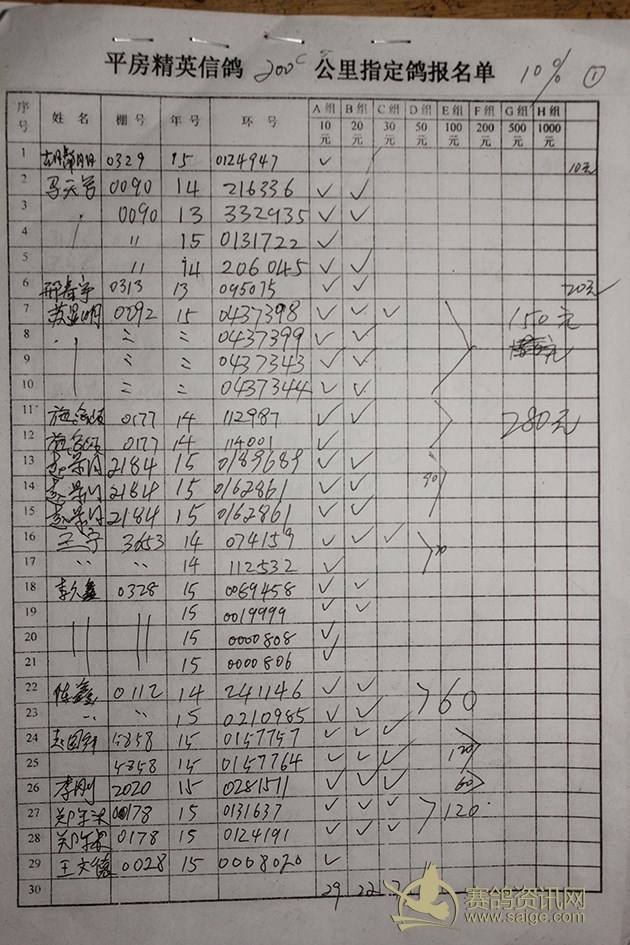 平房精英信鸽 200 公里指定鸽报名单 10% ①
序号 姓名 棚号 年号 环号 A组 10元 B组 20元 C组 30元 D组 50元 E组 100元 F组 200元 G组 500元 H组 1000元
1 0329 15 0124947 ✓ 10元
2 0090 14 216336 ✓ ✓
3 〃 0090 13 332935 ✓ ✓
4 〃 15 0131722 ✓
5 〃 14 206045 ✓ ✓
6 0313 13 095075 ✓ ✓ 20元
7 0092 15 0437398 ✓ ✓ ✓ 150元
8 0437399 ✓ ✓
9 0437343 ✓ ✓
10 0437344 ✓ ✓
11 0177 14 112987 ✓ ✓ 280元
12 0177 14 114001 ✓
13 2184 15 0189689 ✓ ✓
14 2184 15 0162861 ✓ ✓ 90
15 2184 15 0162861 ✓ ✓
16 王宇 3053 14 074159 ✓ ✓ ✓
17 〃 〃 14 112532 ✓
18 0328 15 0069458 ✓ ✓
19 15 0019999 ✓ ✓
20 15 0000808 ✓
21 15 0000806 ✓
22 陈鑫 0112 14 241146 ✓ ✓ 60
23 〃 〃 15 0210985 ✓ ✓
24 5858 15 0157757 ✓ ✓ ✓
25 5858 15 0157764 ✓ ✓ ✓ 120
26 李刚 2020 15 0281511 ✓ ✓ ✓ 60
27 0178 15 0131637 ✓ ✓ ✓ 120
28 0178 15 0124191 ✓ ✓ ✓
29 王文德 0028 15 0068020 ✓
30 29 22
赛鸽资讯网
www.saige.com